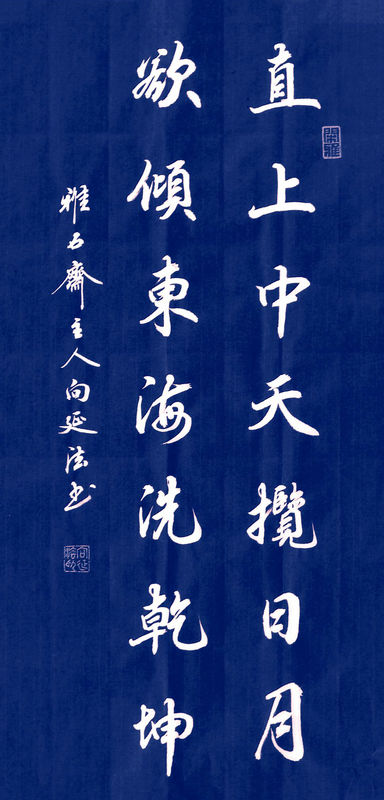 直上中天攬日月
欲傾東海洗乾坤
雅石齋主人向延法書